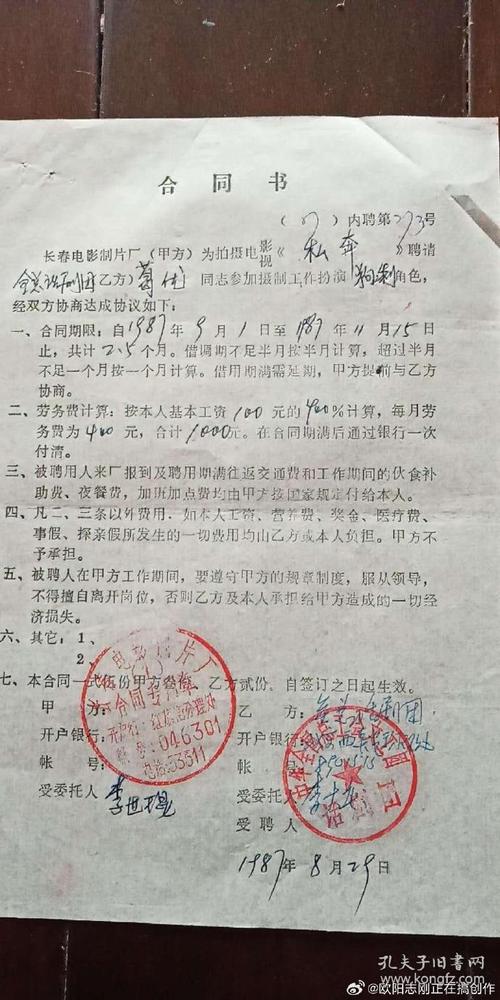 合同书
(87)内聘第273号
长春电影制片厂(甲方)为拍摄电影视《私奔》聘请
全总话剧团(乙方)葛优同志参加摄制工作扮演狗剩角色,
经双方协商达成协议如下:
一、合同期限:自1987年9月1日至1987年11月15日
止,共计2.5个月。借调期不足半月按半月计算,超过半月
不足一个月按一个月计算。借用期满需延期,甲方提前与乙方
协商。
二、劳务费计算:按本人基本工资100元的400%计算,每月劳
务费为400元,合计1000元。在合同期满后通过银行一次
付清。
三、被聘用人来厂报到及聘用期满往返交通费和工作期间的伙食补
助费、夜餐费,加班加点费均由甲方按国家规定付给本人。
四、凡二、三条以外费用.如本人工资、营养费、奖金、医疗费、
事假、探亲假所发生的一切费用均由乙方或本人负担。甲方不
予承担。
五、被聘人在甲方工作期间,要遵守甲方的规章制度,服从领导,
不得擅自离开岗位,否则乙方及本人承担给甲方造成的一切经
济损失。
六、其它:1、
2、
七、本合同一式伍份甲方叁份,乙方贰份。自签订之日起生效。
甲方:
开户银行:
帐号:
受委托人 李世琨
电影制片厂
合同专用章
开户行:红旗街办理处
帐号:046301
电话:53311
乙方:全总话剧团
开户银行:
帐号:
受委托人
受聘人
中华全国总工会
话剧团
1987年8月29日
孔夫子旧书网
@欧阳志刚正在搞创作